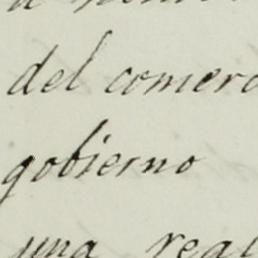 del comerc
gobierno
una real